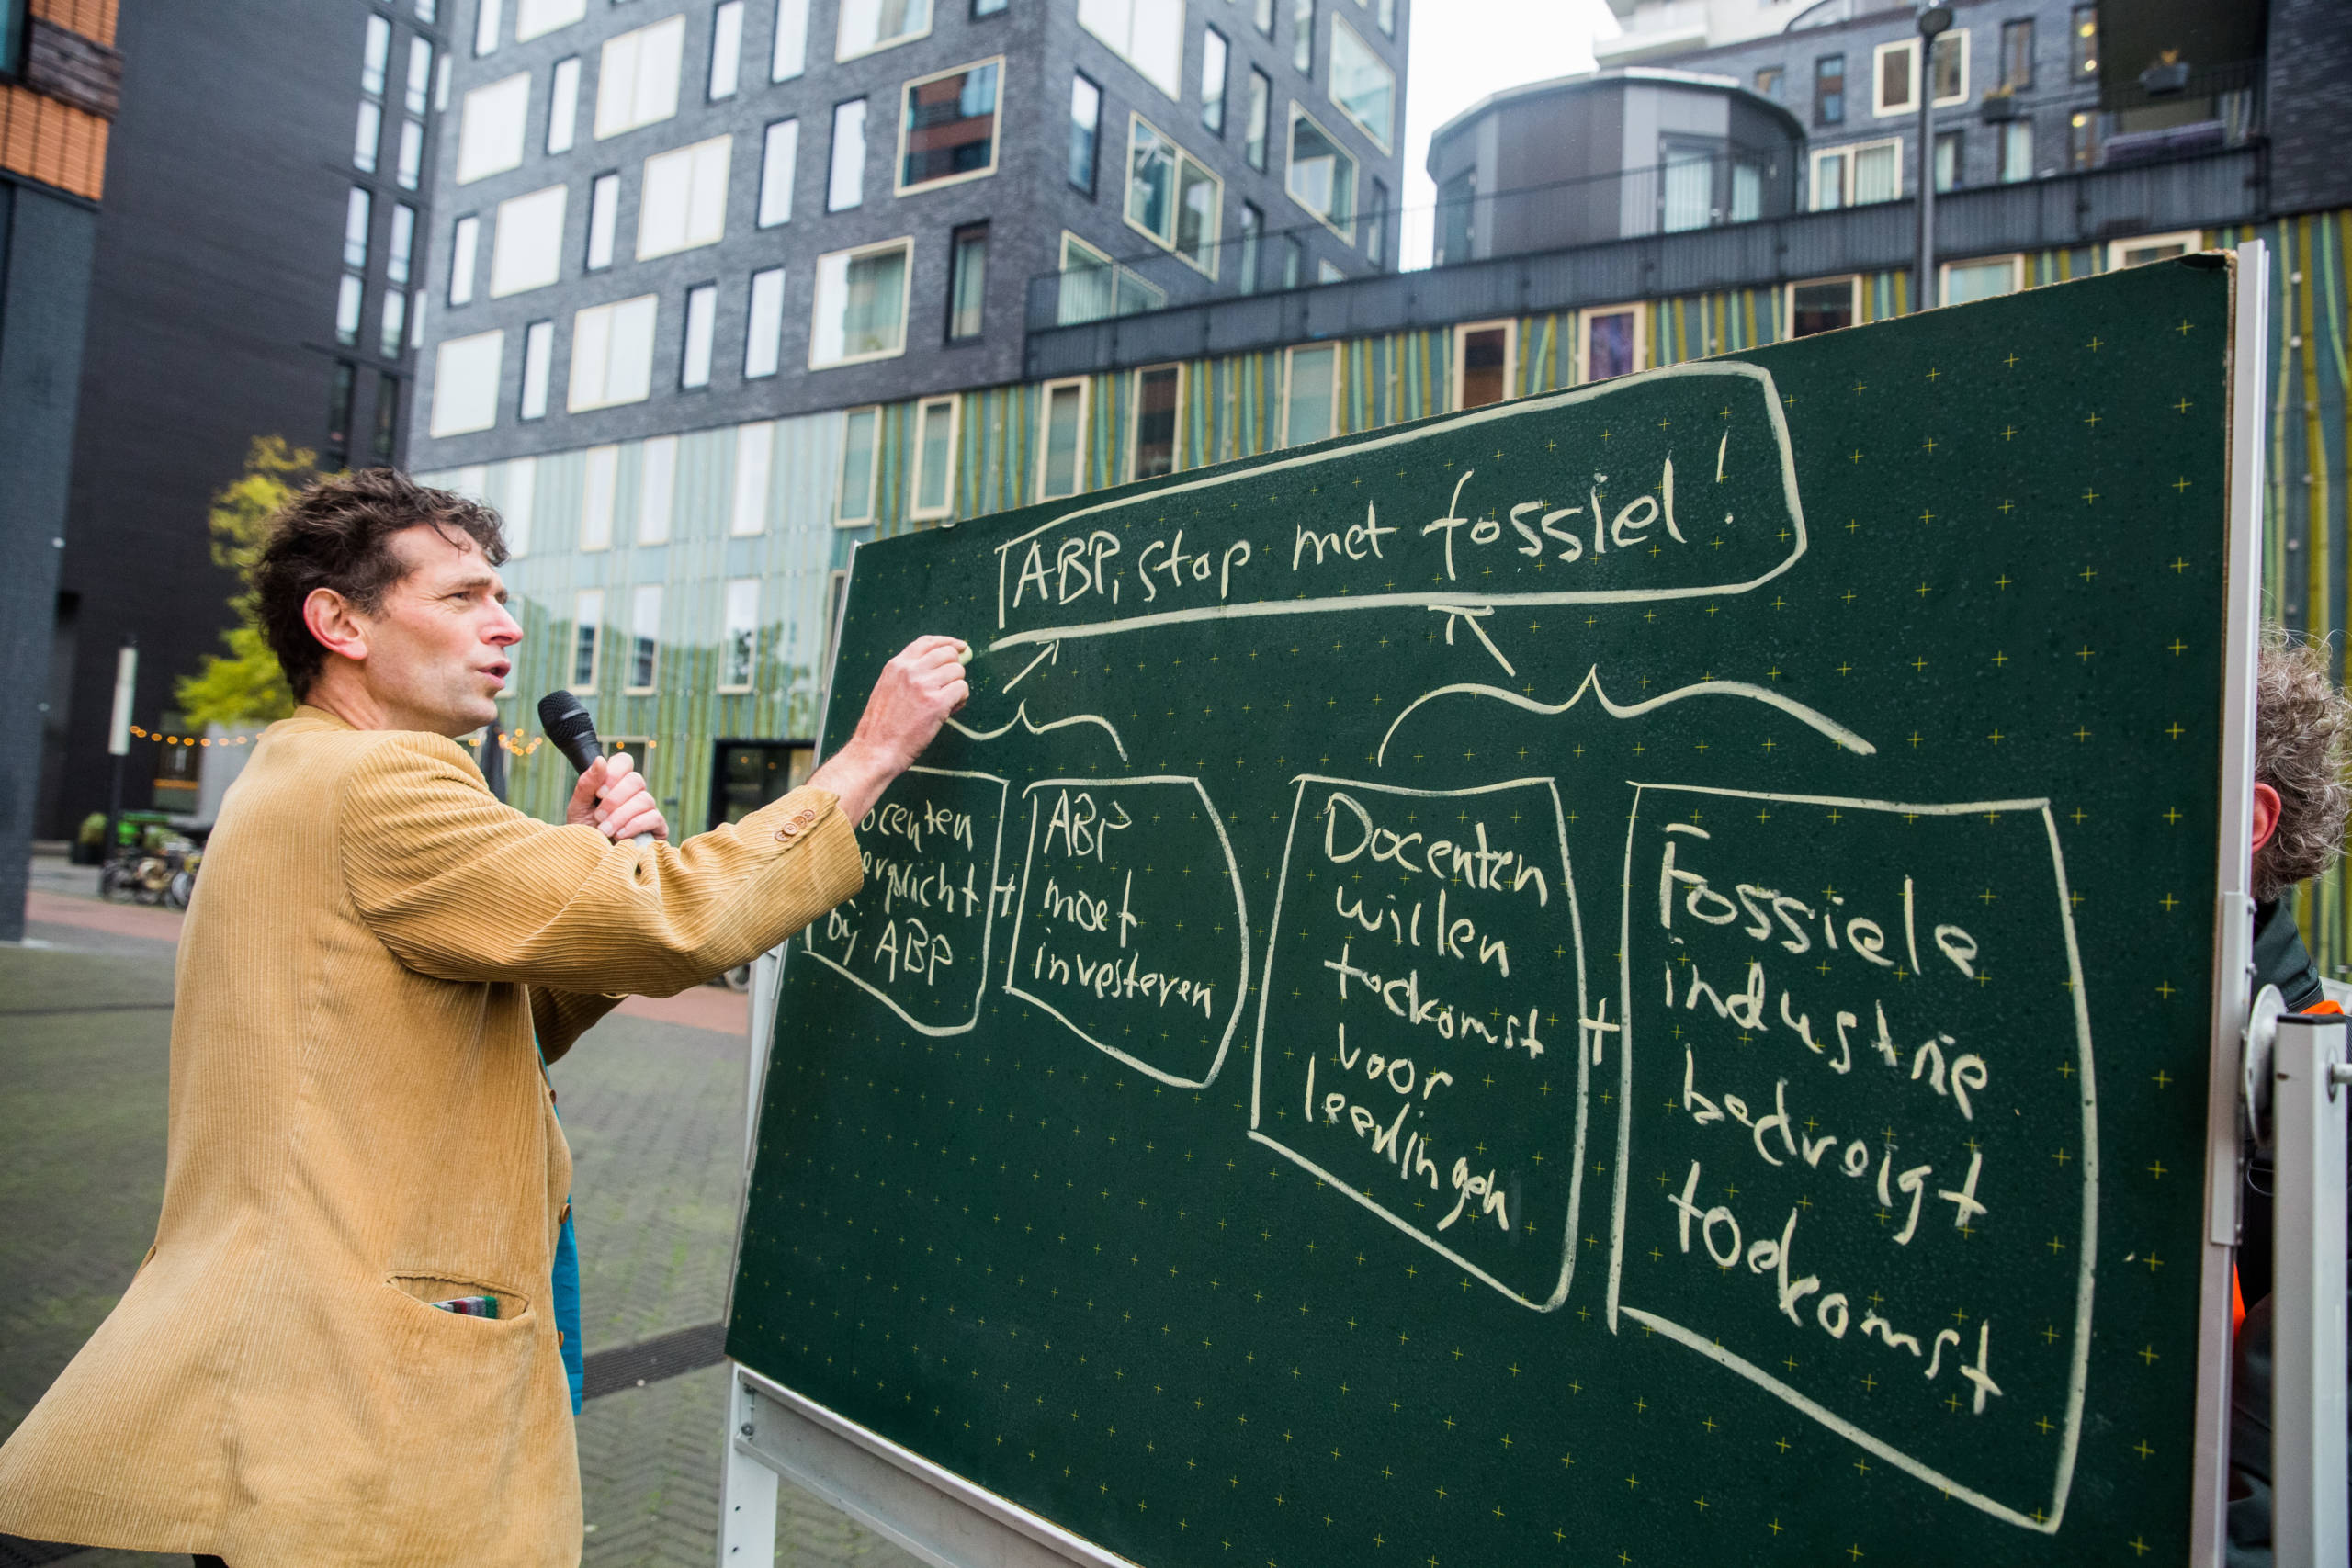 ABP, stop met fossiel!
ocenten
erplicht
bij ABP
+
ABP
moet
investeren
Docenten
willen
toekomst
voor
leerlingen
+
Fossiele
industrie
bedreigt
toekomst